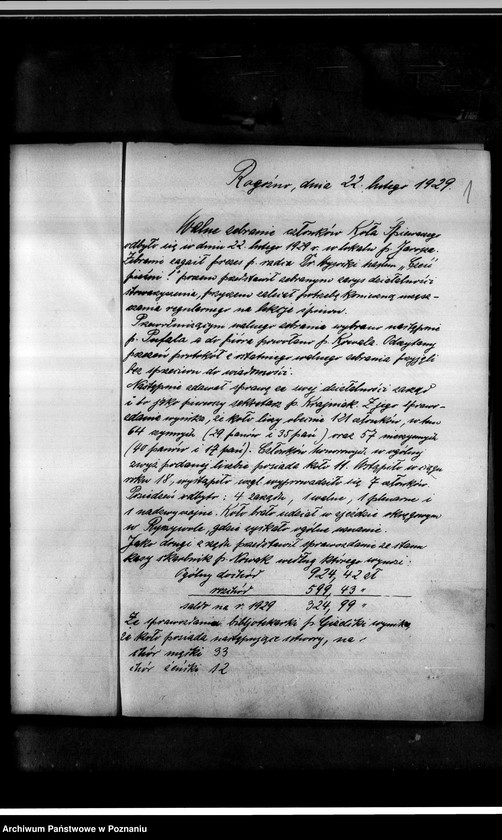 Rogoźno, dnia 22. lutego 1929.
1
Walne zebranie członków Koła Śpiewnego
odbyło się w dniu 22 lutego 1929 r. w lokalu p.
Zebranie zagaił prezes p. radca Dr. hasłem „Cześć
pieśni!" poczem przedstawił zebranym zarys działalności
stowarzyszenia, przyczem zaznaczył potrzebę
regularnego na lekcje śpiewu.
Przewodniczącym walnego zebrania wybrano następnie
p. a do pióra powołano p. Kowala. Odczytany
protokół z ostatniego walnego zebrania przyjęto
bez sprzeciwu do wiadomości.
Następnie zdawał sprawę ze swej działalności zarząd
i to jako pierwszy sekretarz p. Krajniak. Z jego spraw-
zdania wynika, że koło liczy obecnie 121 członków, w tem
64 czynnych (29 panów i 35 pań) oraz 57 nieczynnych
(40 panów i 17 pań). Członków honorowych w ogólnej
podanej liczbie posiada koło 11. Wstąpiło w ciągu
roku 18, wystąpiło wzgl. wyprowadziło się 7 członków.
Posiedzeń odbyto: 4 zarządu, 1 walne, 1 plenarne i
1 nadzwyczajne. Koło brało udział w zjeździe okręgowym
w Ryczywole, gdzie zyskało ogólne uznanie.
Jako drugi z rzędu przedstawił sprawozdanie ze stanu
kasy skarbnik p. Nowak według którego wynosi:
Ogólny dochód 924,42 zł
rozchód 599,43 "
saldo na r. 1929 324,99 "
Ze sprawozdania bibljotekarki p. wynika,
że koło posiada następujące utwory, na
chór męski 33
chór żeński 12
Archiwum Państwowe w Poznaniu